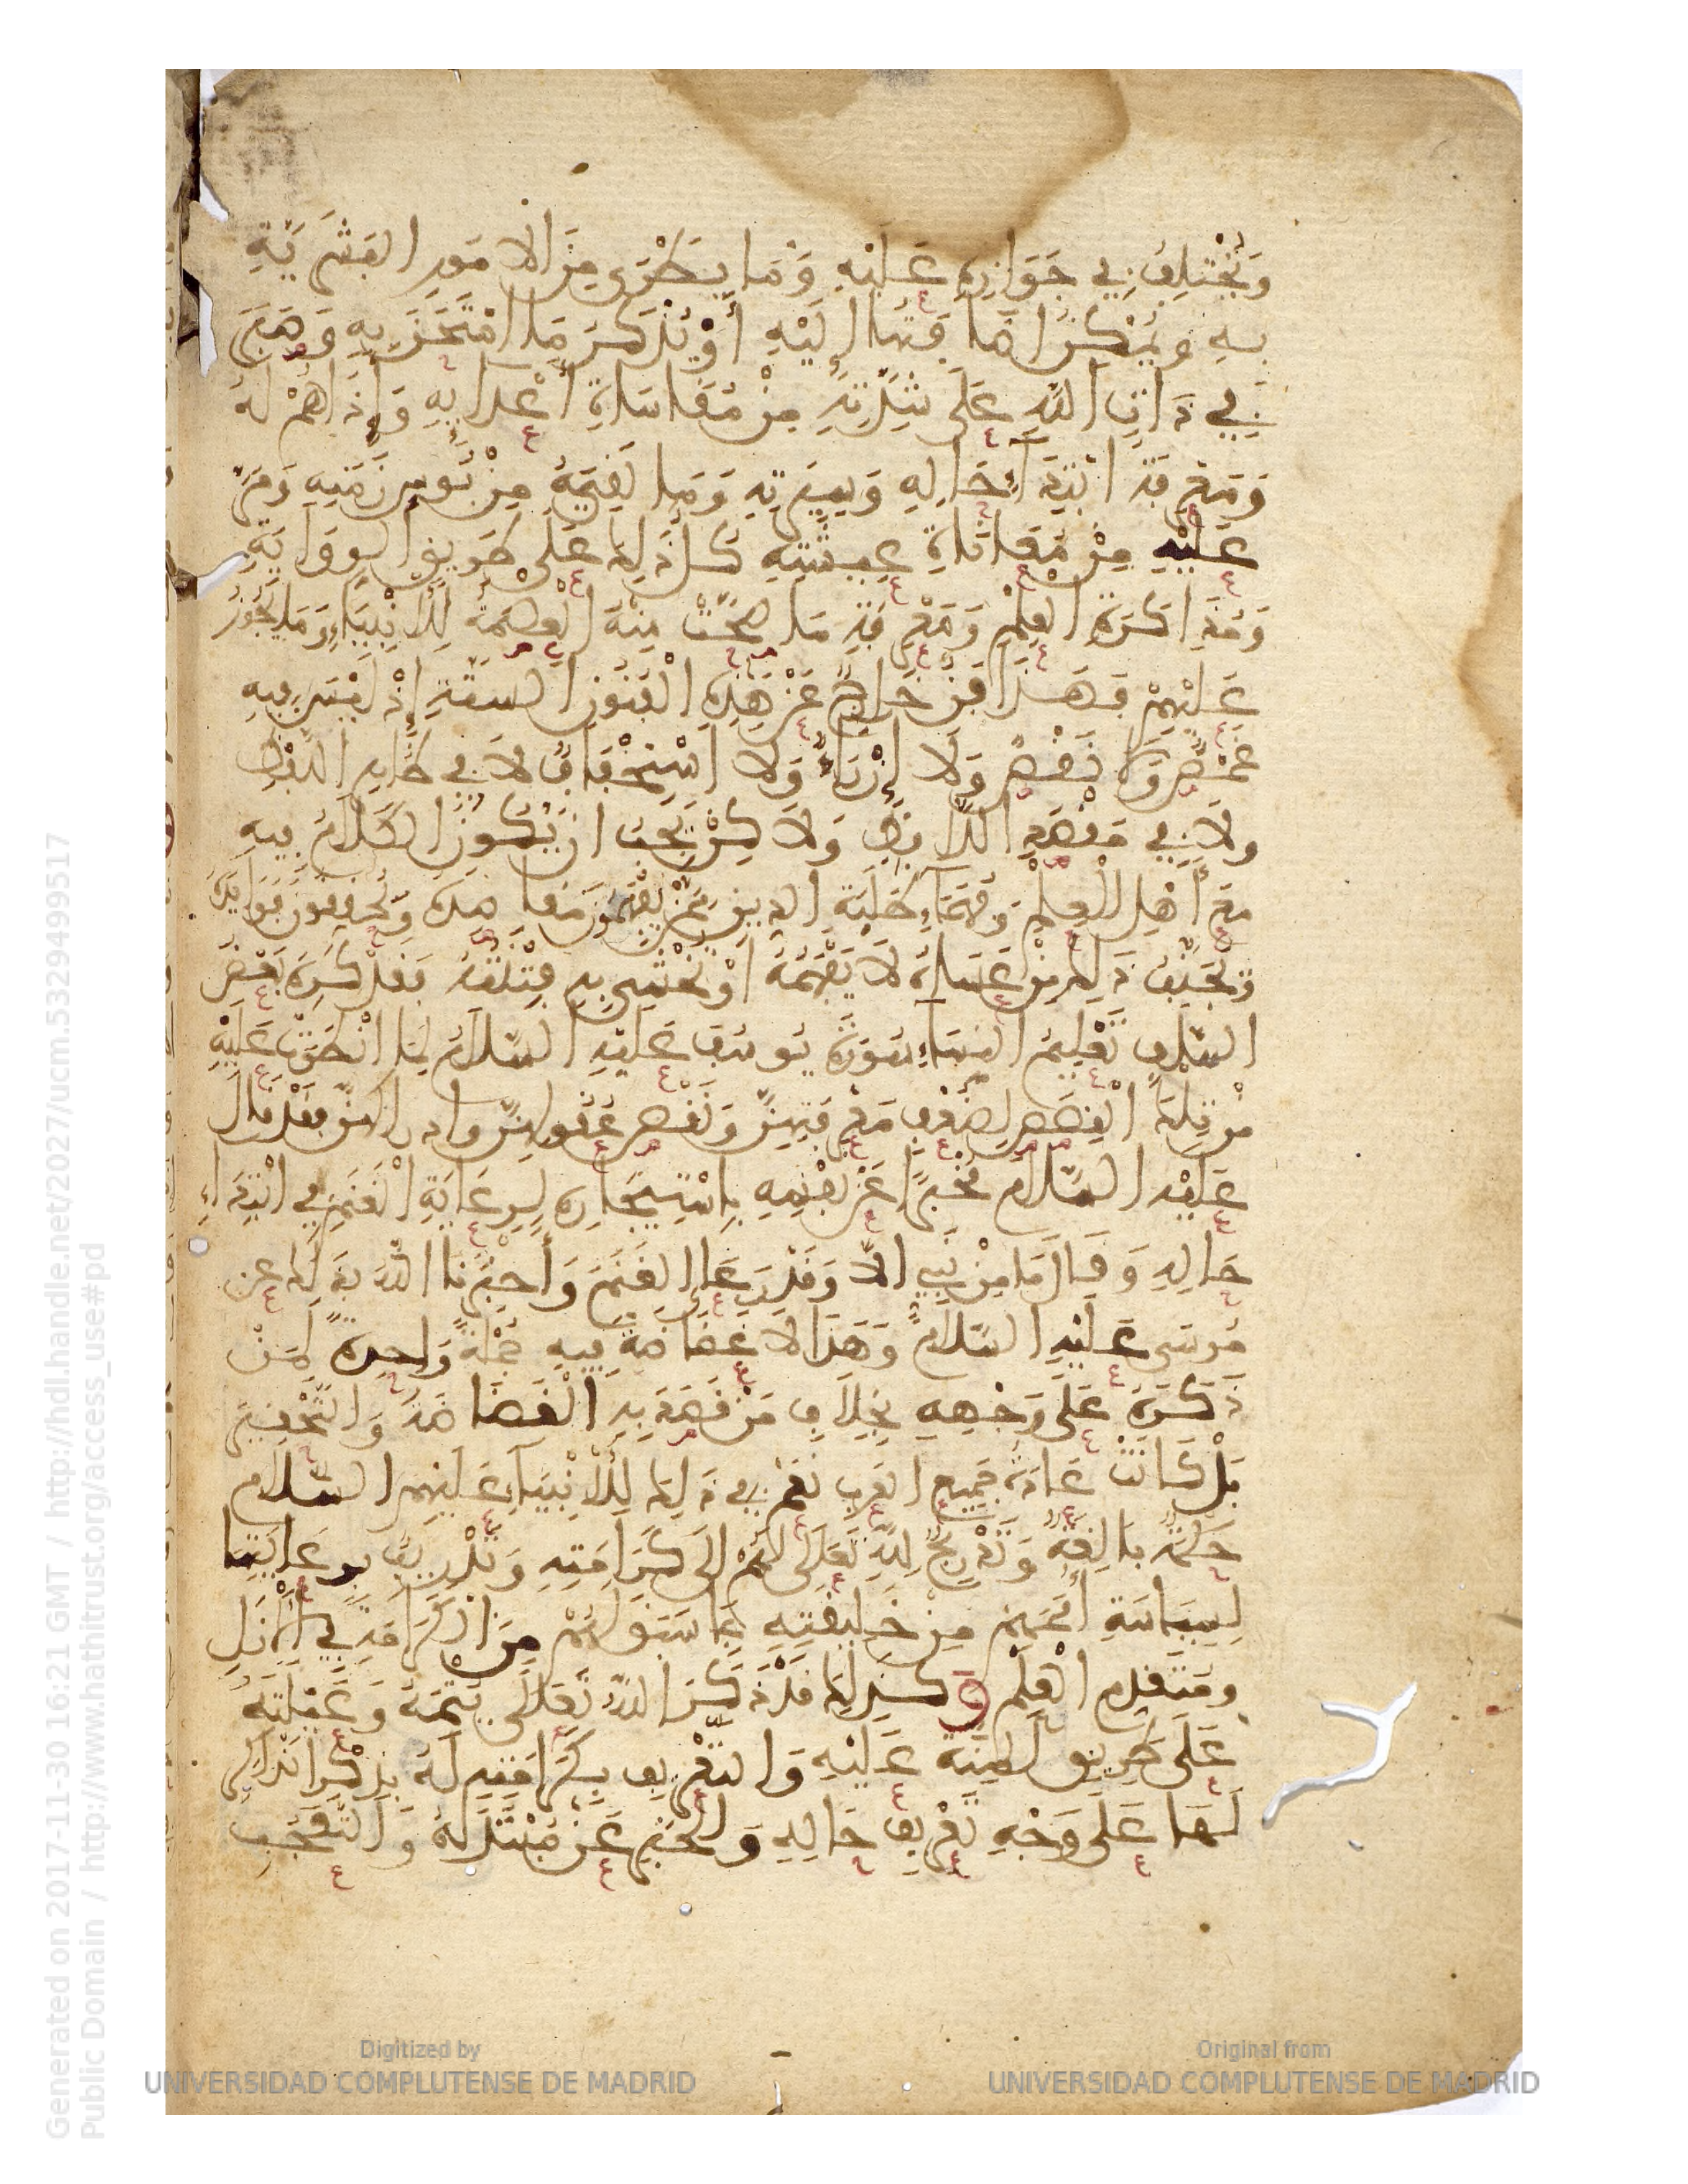 وَيُخْتَلِفُ فِي جَوَازِهِ عَلَيْهِ وَمَا يَطْرَى مِنَ الامُورِ البَشَرِيَّةِ
بِهِ وَيُمْكِنُ إِضَافَتُهَا إِلَيْهِ أَوْ يُذْكَرَ مَا امْتُحِنَ بِهِ وَصَبَرَ
فِي ذَاتِ اللهِ عَلَى شِدَّتِهِ مِنْ مُقَاسَاةِ أَعْدَائِهِ وَإِذَاهُمْ لَهُ
وَمَعْرِفَةِ ابْتِدَاءِ حَالِهِ وَسِيرَتِهِ وَمَا لَقِيَهُ مِنْ بُوسِ زَمَنِهِ وَمَرَّ
عَلَيْهِ مِنْ مُعَانَاةِ عِيشَتِهِ كُلُّ ذَلِكَ عَلَى طَرِيقِ الرِّوَايَةِ
وَمُذَاكَرَةِ العِلْمِ وَمَعْرِفَةِ مَا صَحَّتْ مِنْهُ الْعِصْمَةُ لِلْأَنْبِيَاءِ وَمَا يَجُوزُ
عَلَيْهِمْ فَهَذَا فَنٌّ خَارِجٌ عَنْ هَذِهِ الْفُنُونِ السِّتَّةِ إِذْ لَيْسَ فِيهِ
غَمْصٌ وَلَا نَقْصٌ وَلَا إِزْرَاءٌ وَلَا اسْتِخْفَافٌ لَا فِي ظَاهِرِ اللَّفْظِ
وَلَا فِي مَقْصَدِ اللَّافِظِ وَلَاكِنْ يَجِبُ ان يَكُونَ الكَلَامُ فِيهِ
مَعَ أَهْلِ الْعِلْمِ وَفُهَمَاءِ طَلَبَةِ الدِّينِ مِمَّنْ يَفْهَمُ مَقَاصِدَهُ وَيُحَقِّقُونَ فَوَايِدَهُ
وَيُجَنَّبُ ذَلِكَ مَنْ عَسَاهُ لَا يَفْهَمُهُ أَوْ يُخْشَى بِهِ فِتْنَتُهُ فَقَدْ كَرِهَ بَعْضُ
السَّلَفِ تَعْلِيمَ النِّسَاءِ سُورَةَ يُوسُفَ عَلَيْهِ السَّلَامُ لِمَا انْطَوَتْ عَلَيْهِ
مِنْ تِلْكَ الْقِصَصِ لِضُعْفِ مَعْرِفَتِهِنَّ وَنَقْصِ عُقُولِهِنَّ وادراكهن فَقَدْ قَالَ
عَلَيْهِ السَّلَامُ مُخْبِرًا عَنْ نَفْسِهِ بِاسْتِيجَارِهِ لِرِعَايَةِ الْغَنَمِ فِي ابْتِدَاءِ
حَالِهِ وَقَالَ مَا مِنْ نَبِيٍّ الَّا وَقَدْ رَعَا الغَنَمَ وَأَخْبَرَنَا اللهُ بِذَلِكَ عَن
مُوسَى عَلَيْهِ السَّلَامُ وَهَذَا لَا غَضَاضَةَ فِيهِ جُمْلَةً وَاحِدَةً لِمَنْ
ذَكَرَهُ عَلَى وَجْهِهِ بِخِلَافِ مَنْ قَصْدُهُ بِهِ الْغَضَاضَةَ وَالتَّحْقِيرَ
بَلْ كَانَتْ عَادَةَ جَمِيعِ الْعَرَبِ نَعَمْ فِي ذَلِكَ لِلْأَنْبِيَاءِ عَلَيْهِمُ السَّلَامُ
حِكْمَةٌ بَالِغَةٌ وَتَدْرِيجٌ لِلَّهِ تَعَلَى لَهُمْ إِلَى كَرَامَتِهِ وَتَدْرِيبٌ بِرِعَايَتِهَا
لِسِيَاسَةِ أُمَمِهِمْ مِنْ خَلِيقَتِهِ بِمَا سَبَقَ لَهُمْ مِنَ الكَرَامَةِ فِي الْأَزَلِ
وَمُتَقَدِّمِ الْعِلْمِ وَكَذَلِكَ قَدْ ذَكَرَ اللهُ تَعَالَى يُتْمَهُ وَعَيْلَتَهُ
عَلَى طَرِيقِ الْمِنَّةِ عَلَيْهِ وَالتَّعْرِيفِ بِكَرَامَتِهِ لَهُ فَذِكْرُ الذَّاكِرِ
لَهَا عَلَى وَجْهِ تَعْرِيفِ حَالِهِ وَالْخَبَرِ عَنْ مُبْتَدَئِهِ وَالتَّعَجُّبِ
Generated on 2017-11-30 16:21 GMT / http://hdl.handle.net/2027/ucm.5329499517
Public Domain / http://www.hathitrust.org/access_use#pd
Digitized by
UNIVERSIDAD COMPLUTENSE DE MADRID
Original from
UNIVERSIDAD COMPLUTENSE DE MADRID